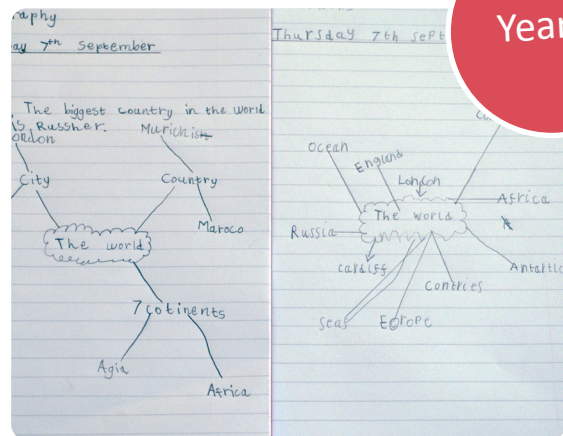 raphy
ay 7th September
The biggest country in the world
is Russher.
ondon
City
Country
Maroco
The world
7 cotinents
Agia
Africa
Year
Thursday 7th sept
Ocean
England
London
Africa
The world
Russia
Cardiff
Antartic
Contries
Seas
Europe